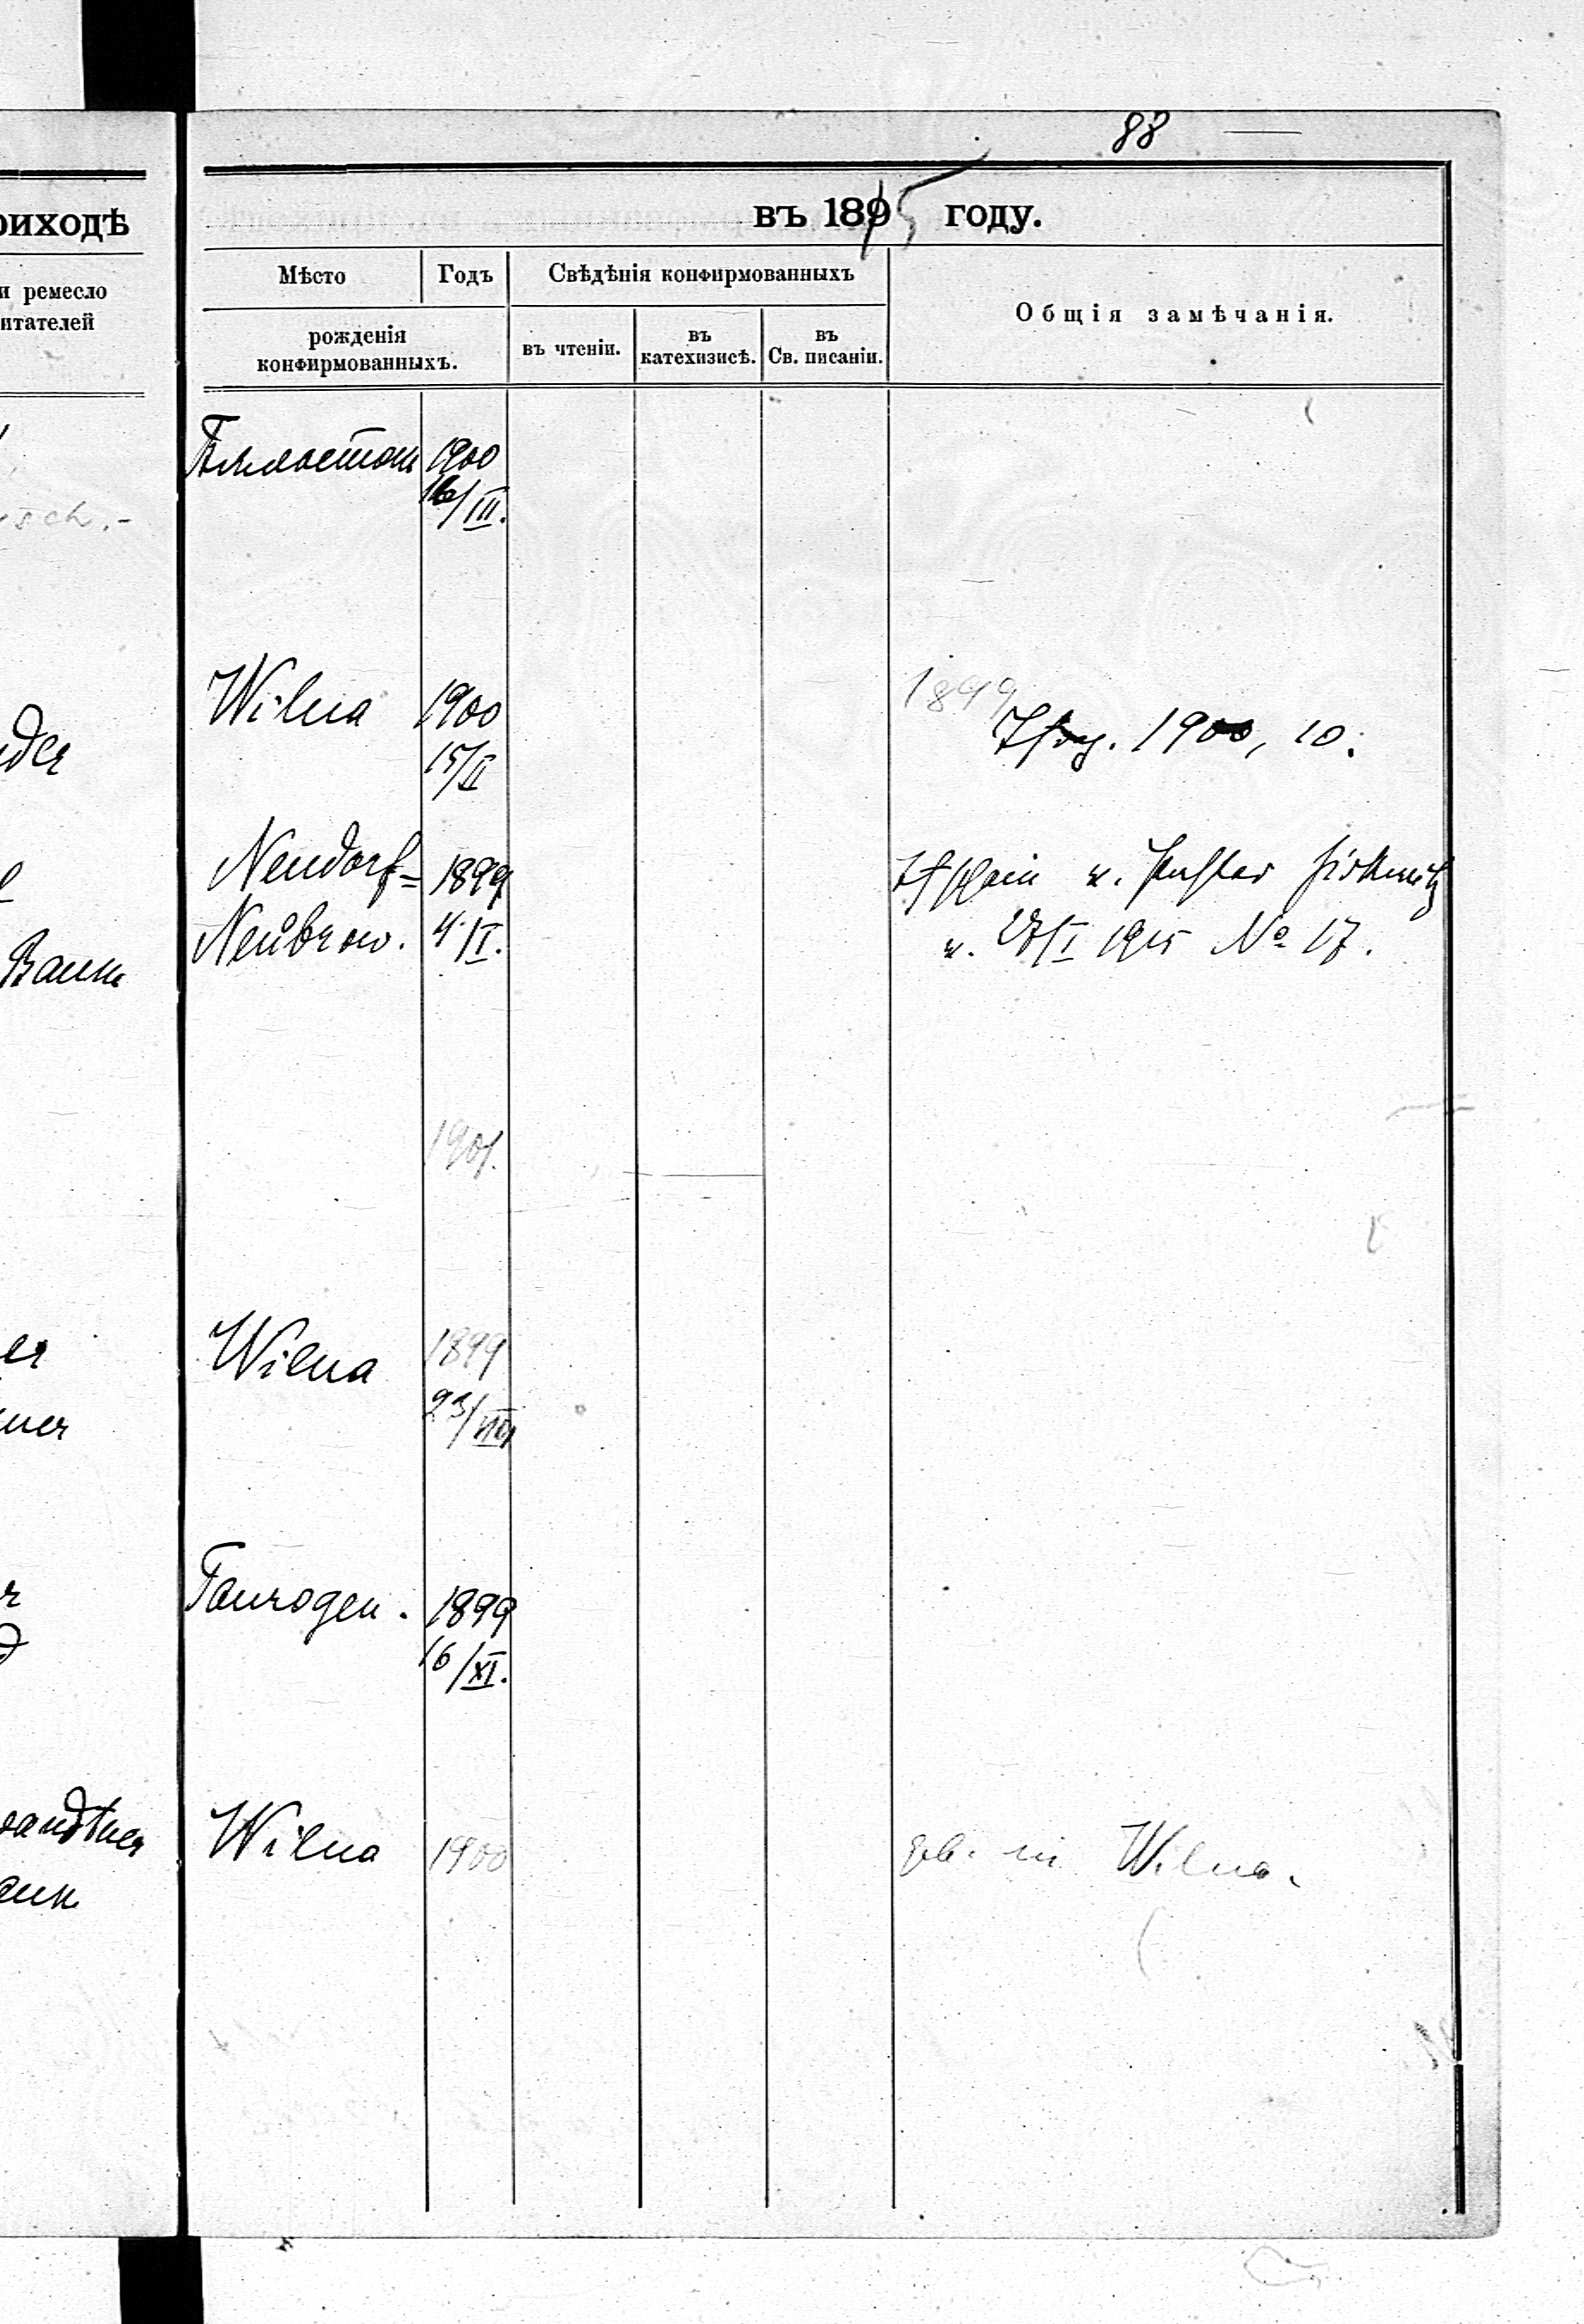 88
риходѣ
въ 1895 году.
и ремесло
итателей
Мѣсто
Годъ
рожденія
конфирмованныхъ.
Свѣдѣнія конфирмованныхъ
въ чтеніи.
въ
катехизисѣ.
въ
Св. писаніи.
Общія замѣчанія.
sch.-
1900
16/III.
Wilna 1900
15/II
1899
1900, 10.
Neudorf= 1899
Neubrow. 4/I.
Bank
v. Pastor
v. 27/I 1915 № 17.
1901.
Wilna 1899
23/VIII
Taurogen. 1899
16/XI.
Wilna 1900
geb. in Wilna.